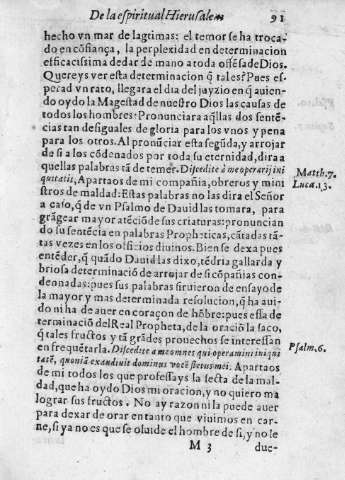 De la espiritual Hierusalem 91
hecho vn mar de lagrimas: el temor se ha troca-
do en cõfiança, la perplexidad en determinacion
efficacissima de dar de mano a toda offẽsa de Dios.
Quereys ver esta determinacion q̃ tal es? Pues es-
perad vn rato, llegara el dia del juyzio en q̃ auien-
do oydo la Magestad de nuestro Dios las causas de
todos los hombres: Pronunciara aq̃llas dos sentẽ-
cias tan desiguales de gloria para los vnos y pena
para los otros. Al pronũciar esta segũda, y arrojar
de si a los cõdenados por toda su eternidad, dira a
quellas palabras tã de temer. Discedite à me operarij ini
quitatis, Apartaos de mi compañia, obreros y mini
stros de maldad: Estas palabras no las dira el Señor
a caso, q̃ de vn Psalmo de Dauid las tomara, para
grãgear mayor atẽciõ de sus criaturas: pronuncian
do su sentẽcia en palabras Propheticas, cãtadas tã-
tas vezes en los officios diuinos. Bien se dexa pues
entẽder, q̃ quãdo Dauid las dixo, tẽdria gallarda y
briosa determinaciõ de arrojar de si cõpañias con-
dennadas: pues sus palabras siruieron de ensayo de
la mayor y mas determinada resolucion, q̃ ha aui-
do ni ha de auer en coraçon de hõbre: pues essa de
terminaciõ del Real Propheta, de la oraciõ la saco,
q̃ tales fructos y tã grãdes prouechos se interessan
en frequẽtarla. Discedite a me omnes qui operamini iniqui
tatẽ, quoniã exaudiuit dominus vocẽ fletus mei. Apartaos
de mi todos los que professays la secta de la mal-
dad, que ha oydo Dios mi oracion, y no quiero ma
lograr sus fructos. No ay razon ni la puede auer
para dexar de orar en tanto que viuimos en car-
ne, si ya no es que se oluide el hombre de si, y no le
M 3 due-
Matth. 7.
Luca. 13.
Psalm. 6.